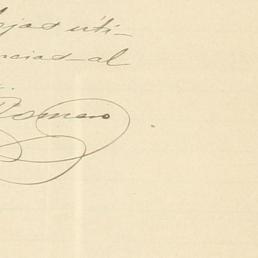 ejas uti-
ncias al
Romero